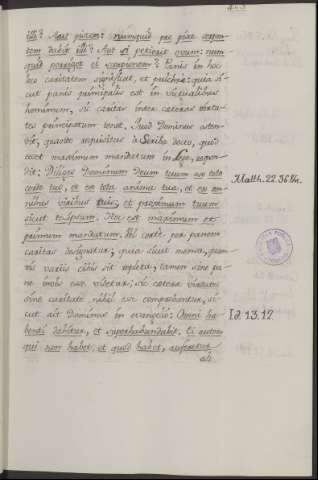 illi? Aut piscem: numquid pro pisce serpen-
tem dabit illi? Aut si petierit ovum: num-
quid porriget ei scorpionem? Panis in hoc
loco caritatem significat, et pulchre: quia si-
cut panis principalis est in victualibus
hominum, sic caritas inter cæteras virtu-
tes principatum tenet. Quod Dominus osten-
dit, quando requisitus a Scriba docto, quod
esset maximum mandatum in Lege, respon-
dit: Diliges Dominum Deum tuum ex toto
corde tuo, et ex tota anima tua, et ex om-
nibus viribus tuis, et proximum tuum
sicut teipsum. Hoc est maximum et
primum mandatum. Vel certe per panem
caritas designatur; quia sicut mensa, quam-
vis variis cibis sit repleta, tamen sine pa-
ne inops esse videtur; sic cetera virtutes
sine caritate nihil esse comprobantur, si-
cut ait Dominus in evangelio: Omni ha-
benti dabitur, et superhabundabit. Ei autem
qui non habet; et quod habet, auferetur
ab
Matth. 22. 36
Id. 13. 12